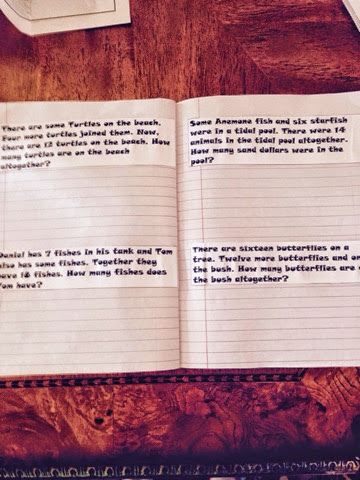 There are some Turtles on the beach.
Four more turtles joined them. Now,
there are 12 turtles on the beach. How
many turtles are on the beach
altogether?
Some Anemone fish and six starfish
were in a tidal pool. There were 14
animals in the tidal pool altogether.
How many sand dollars were in the
pool?
Daniel has 7 fishes in his tank and Tom
also has some fishes. Together they
have fishes. How many fishes does
Tom have?
There are sixteen butterflies on a
tree. Twelve more butterflies and on
the bush. How many butterflies are
the bush altogether?